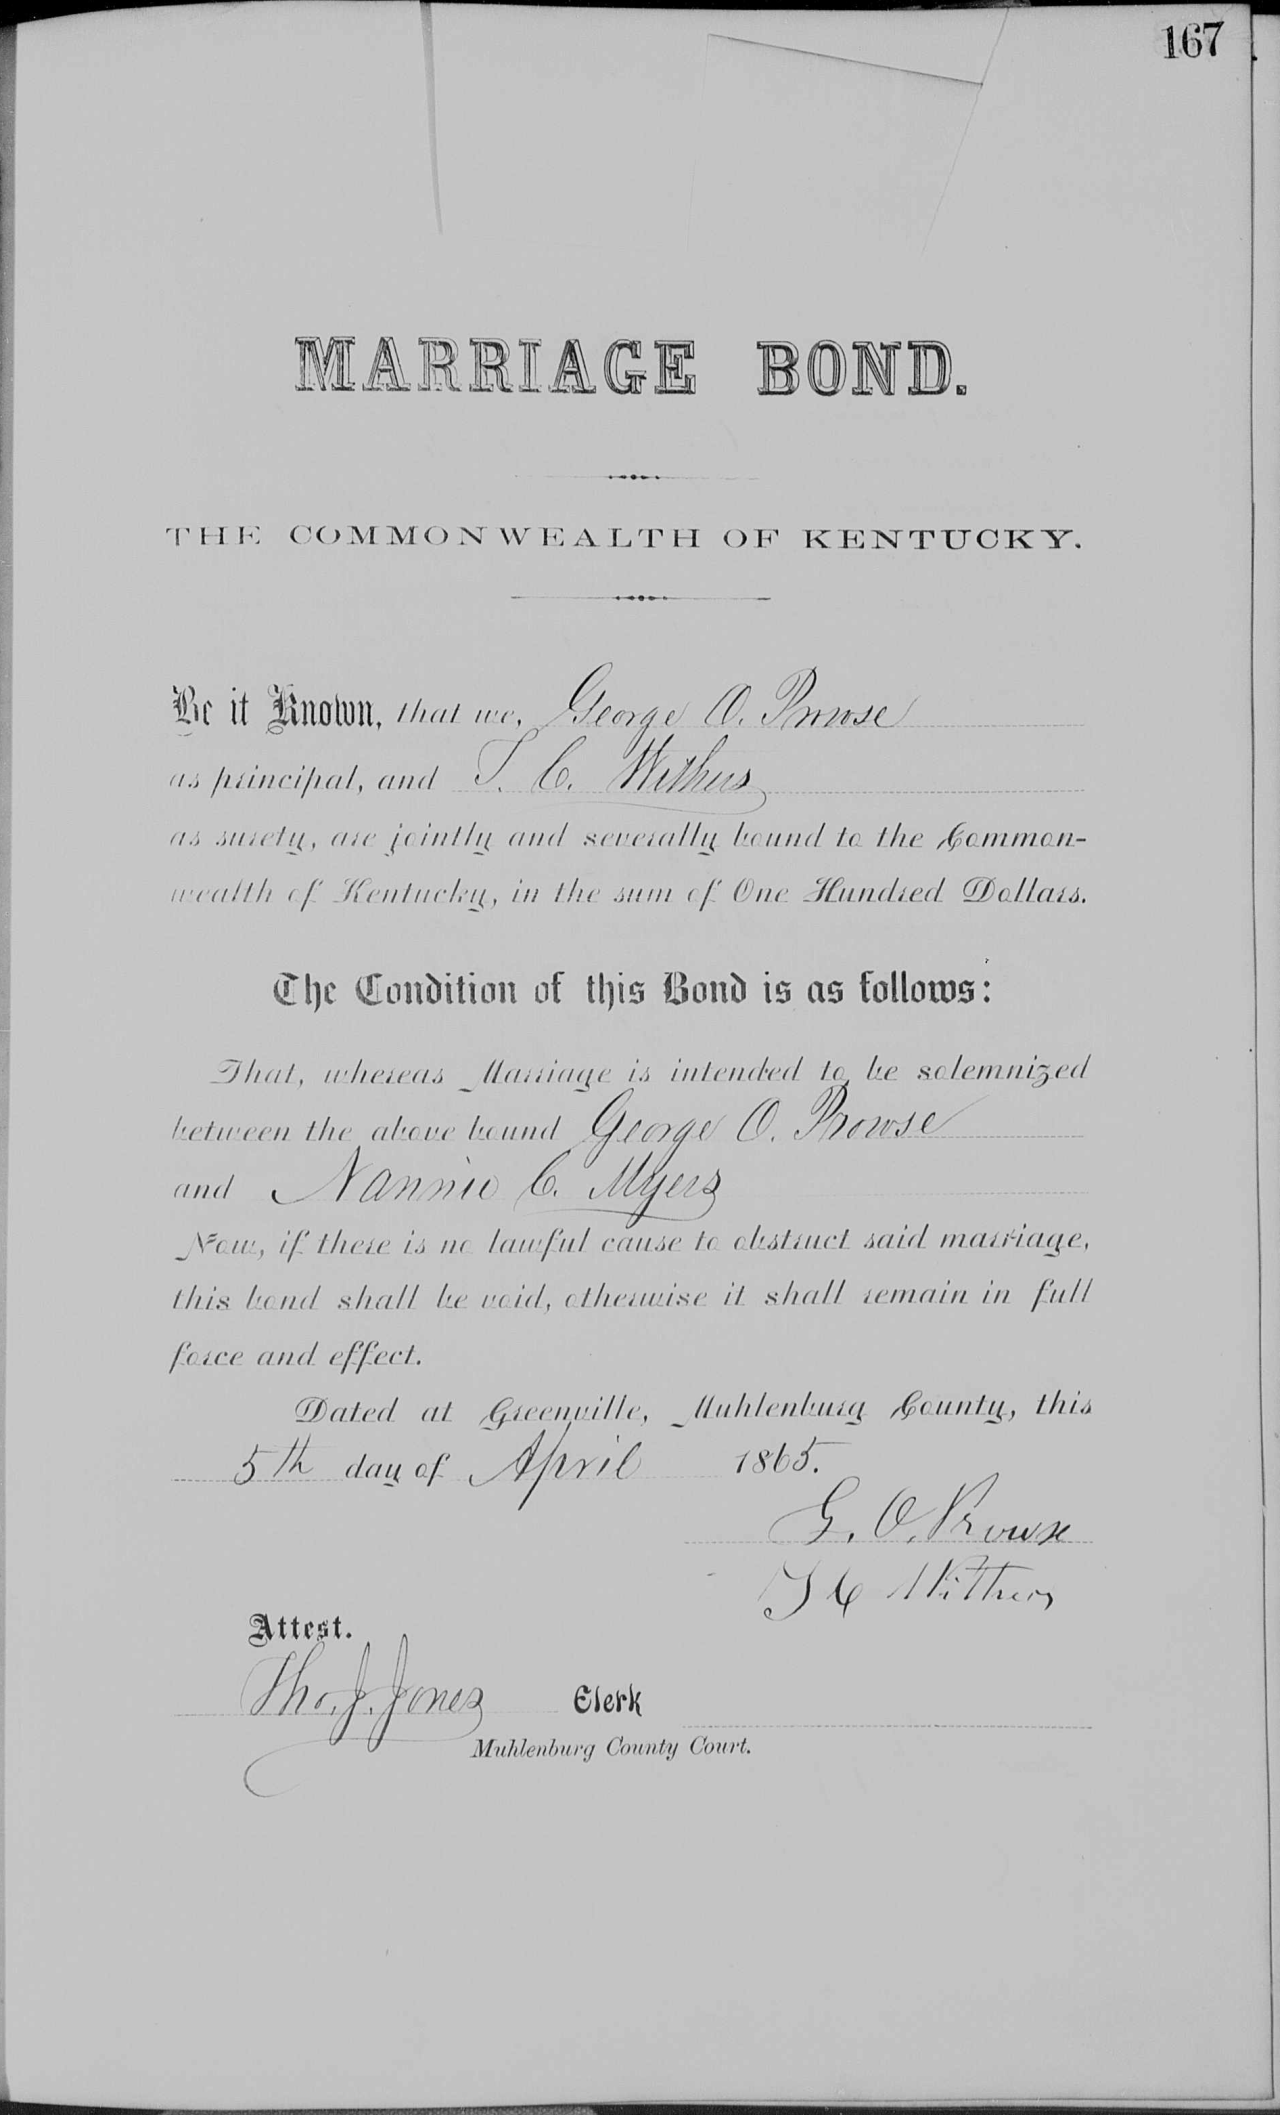 167
MARRIAGE BOND.
THE COMMONWEALTH OF KENTUCKY.
Be it Known, that we, George O. Prowse
as principal, and T. C. Withers
as surety, are jointly and severally bound to the Common-
wealth of Kentucky, in the sum of One Hundred Dollars.
The Condition of this Bond is as follows:
That, whereas Marriage is intended to be solemnized
between the above bound George O. Prowse
and Nannie C. Myers
Now, if there is no lawful cause to obstruct said marriage,
this bond shall be void, otherwise it shall remain in full
force and effect.
Dated at Greenville, Muhlenburg County, this
5th day of April 1865.
G. O. Prowse
T C Withers
Attest.
Tho. J. Jones Clerk
Muhlenburg County Court.